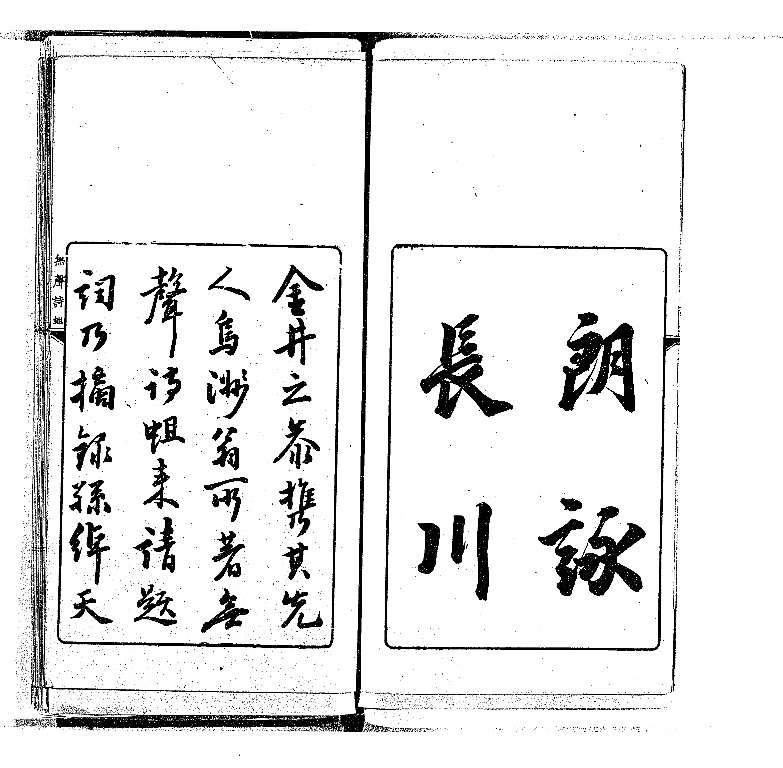 朗詠
長川
金井之恭携其先
人烏洲翁所著無
聲詩蛆来請題
詞乃摘録孫綽天
無聲詩